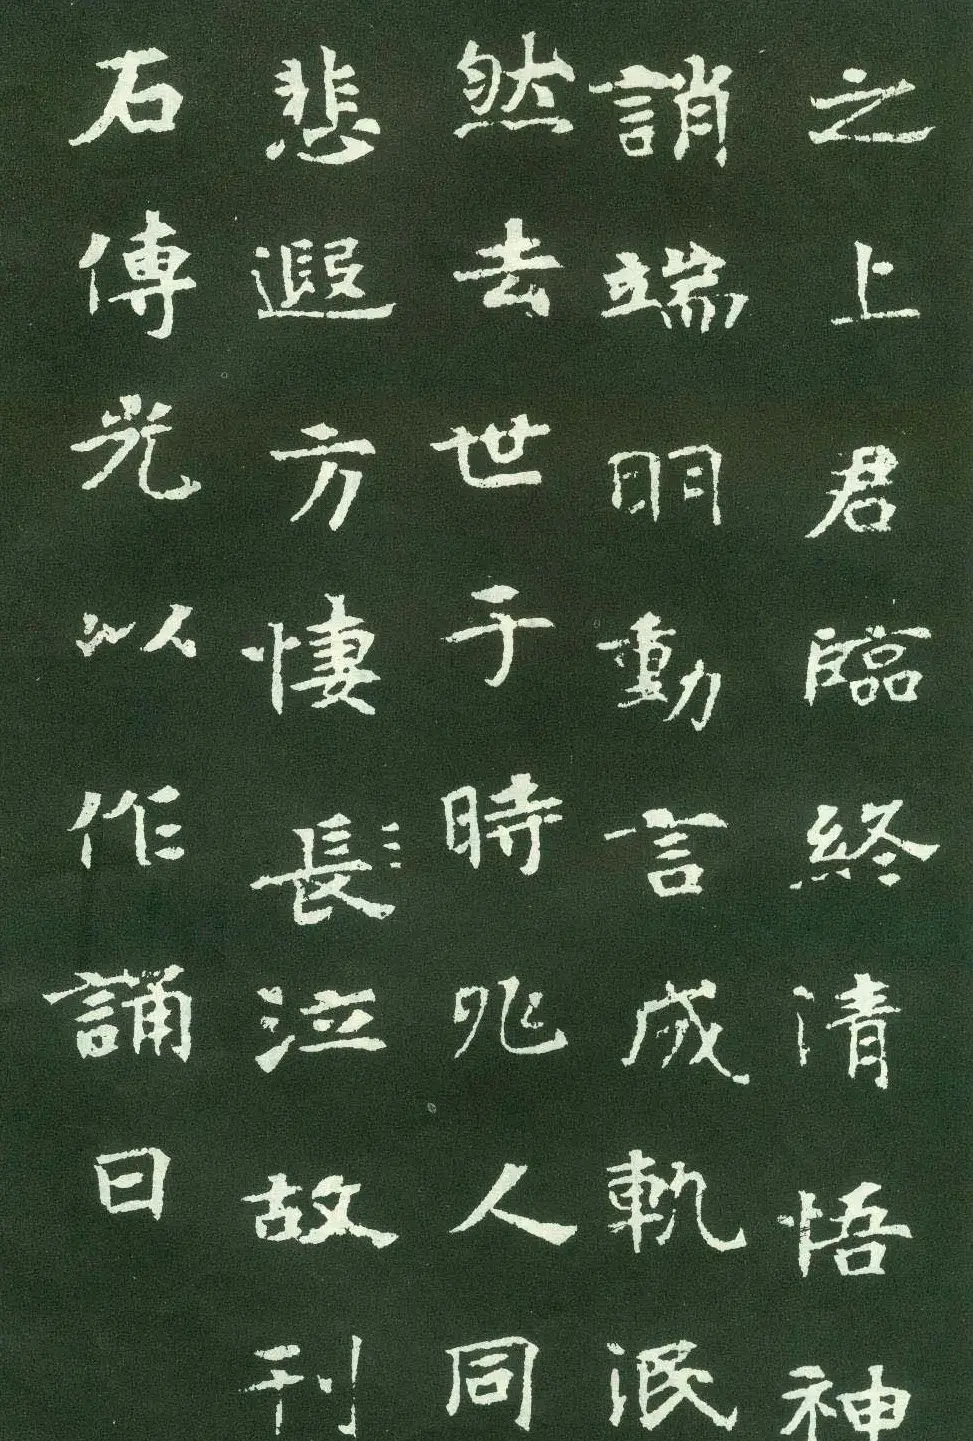 之上君臨終清悟神
誚端明動言成軌泯
然去世于時兆人同
悲遐方悽長泣故刊
石傳光以作誦曰